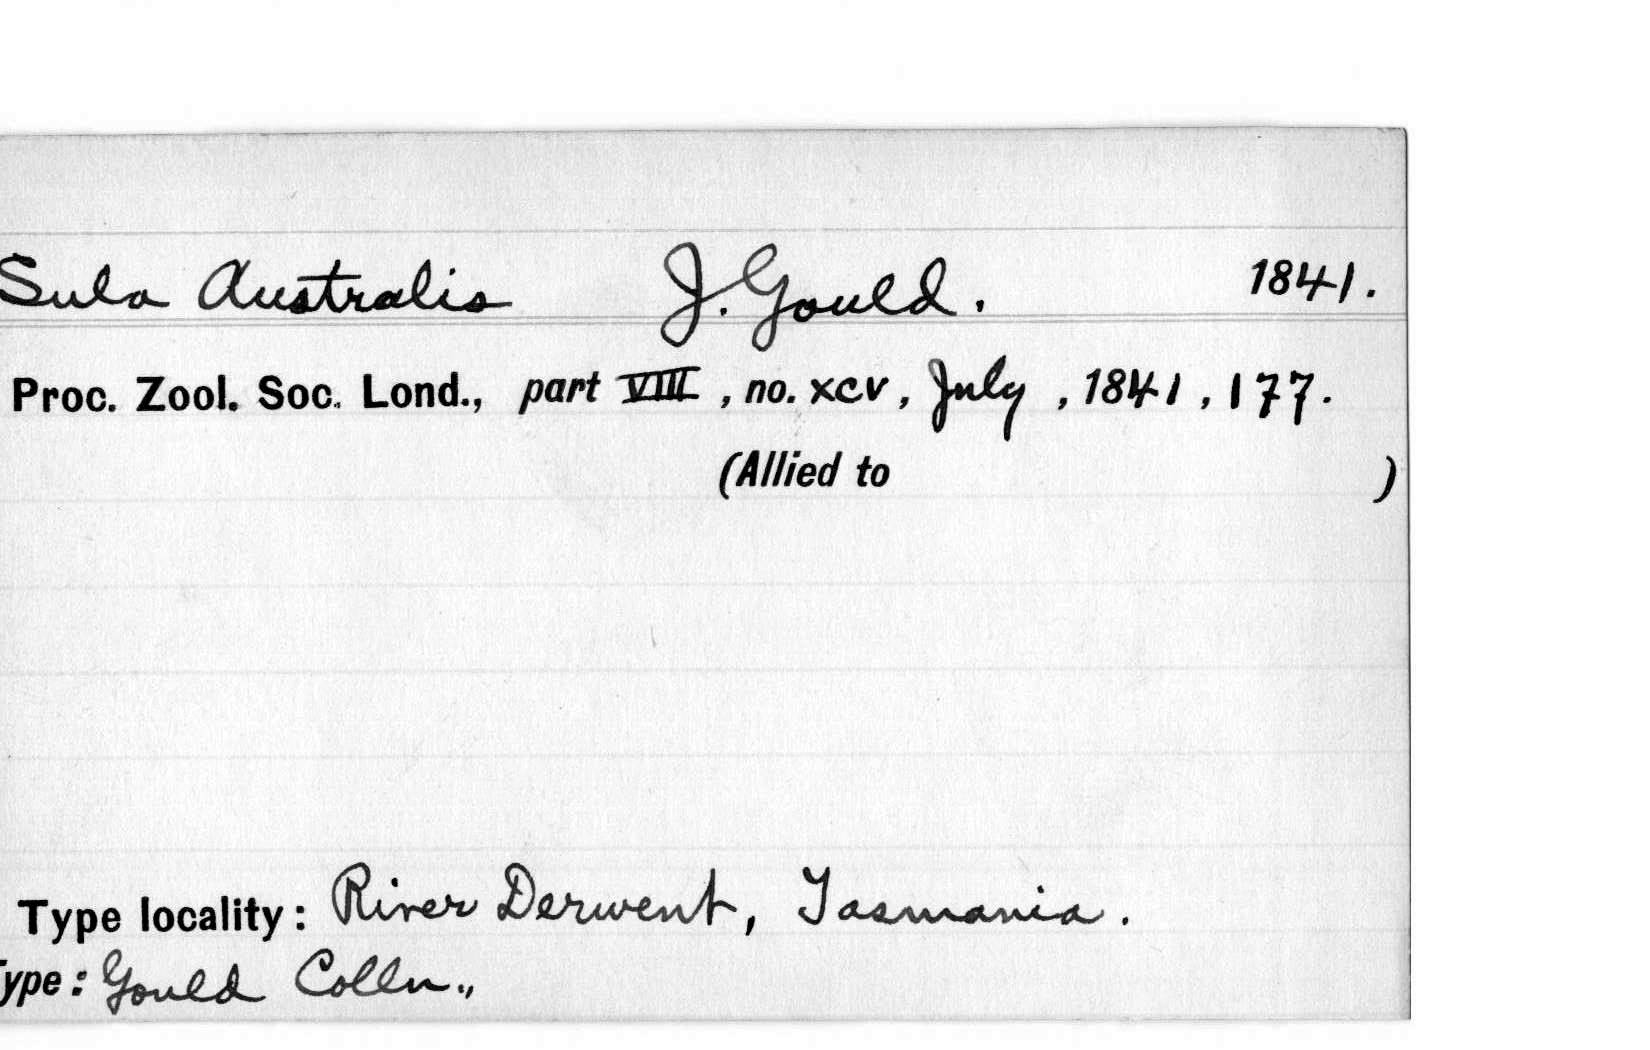 Sula Australis J. Gould. 1841.
Proc. Zool. Soc. Lond., part VIII, no. xcv, July, 1841, 177.
(Allied to )
Type locality: River Derwent, Tasmania.
Type: Gould Colln.,